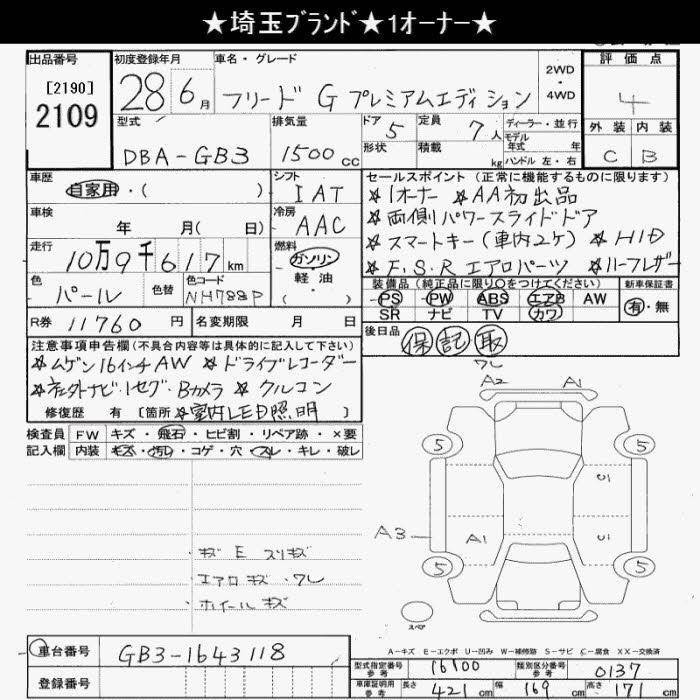 ★埼玉ブランド★1オーナー★
出品番号
[2190]
2109
初度登録年月
28年6月
車名・グレード
フリード G プレミアムエディション
2WD
・
4WD
評価点
4
外装 内装
C B
型式
DBA-GB3
排気量
1500cc
ドア 5
形状
定員 7人
積載 kg
ディーラー・並行
モデル
年式 年
ハンドル 左・右
車歴
自家用・( )
シフト
IAT
セールスポイント (正常に機能するものに限ります)
☆1オーナー ☆AA初出品
☆両側パワースライドドア
☆スマートキー(車内2ケ) ☆HID
☆F,S,R エアロパーツ ☆ハーフレザー
車検
年 月( 日)
冷房
AAC
走行
10万9千617km
燃料
ガソリン
軽油
・( )
色
パール
色替
色コード
NH788P
装備品 (純正品に限り○をつけてください)
PS PW ABS エアB AW
SR ナビ TV カワ
新車保証書
有・無
R券 11760円
名変期限 月 日
後日品
保 記 取
注意事項申告欄(不具合内容等は具体的に記入して下さい)
☆ムゲン16インチAW ☆ドライブレコーダー
☆社外ナビ・1セグ・Bカメラ ☆クルコン
修復歴 有 [箇所 ☆室内LED照明 ]
検査員
記入欄
FW キズ・飛石・ヒビ割・リペア跡・×要
内装 キズ・汚れ・コゲ・穴・スレ・キレ・破レ
・キズ E スリキズ
・エアロキズ・ワレ
・ホイールキズ
ワレ
A2 A1
5 5
A3 A1
5 5
スペア
A-キズ E-エクボ U-凹み W-補修跡 S-サビ C-腐食 XX-交換済
車台番号 GB3-1643118
登録番号
型式指定番号
参考
16100
類別区分番号
参考
0137
車庫証明用
参考
長さ 421cm
幅 169cm
高さ 171cm